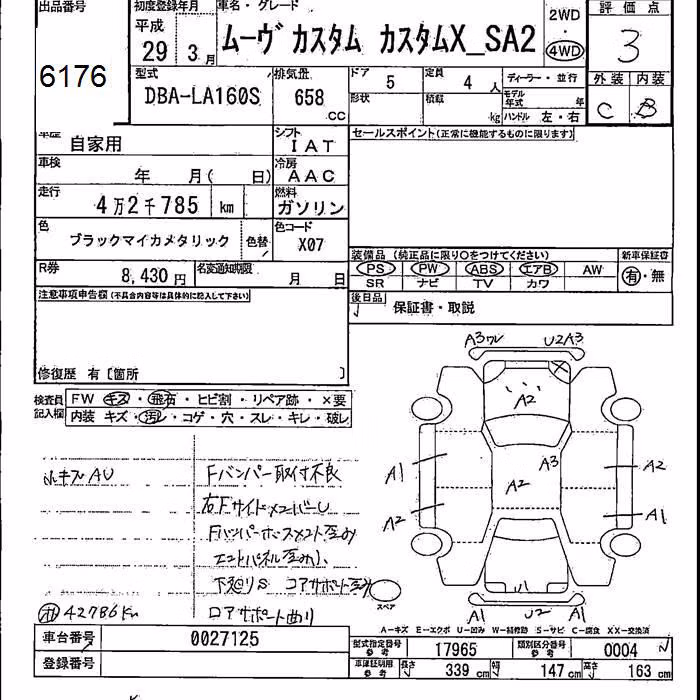 出品番号 初度登録年月 車名・グレード 評価点
平成 29年 3月 ムーヴ カスタム カスタムX_SA2 2WD 4WD 3
6176
型式 DBA-LA160S 排気量 658 CC ドア 5 定員 4人 ディーラー・並行 外装 内装
形状 積載 kg モデル年式 年 ハンドル 左・右 C B
車歴 自家用 シフト IAT セールスポイント(正常に機能するものに限ります)
車検 年 月( 日) 冷房 AAC
走行 4万2千785 km 燃料 ガソリン
色 ブラックマイカメタリック 色替 色コード X07
装備品 (純正品に限り○をつけてください) 新車保証書
R券 8,430円 名変通知期限 月 日 PS PW ABS エアB AW 有・無
SR ナビ TV カワ
注意事項申告欄(不具合内容等は具体的に記入して下さい) 後日品 保証書・取説
修復歴 有〔箇所 〕
検査員記入欄 FW キズ・飛石・ヒビ割・リペア跡・×要
内装 キズ・汚レ・コゲ・穴・スレ・キレ・破レ
A3ワレ U2A3
A2
A1 A2 A3 A2
A2 A1
U1
A1 U2 A1
小キズAU Fバンパー取付不良
右Fサイドメンバーし
下廻りS コアサポート歪み
コアサポート曲り
42786Km
スペア
A-キズ E-エクボ U-凹み W-補修跡 S-サビ C-腐食 XX-交換済
車台番号 0027125 型式指定番号 参考 17965 類別区分番号 参考 0004
登録番号 車庫証明用 参考 長さ 339 cm 幅 147 cm 高さ 163 cm